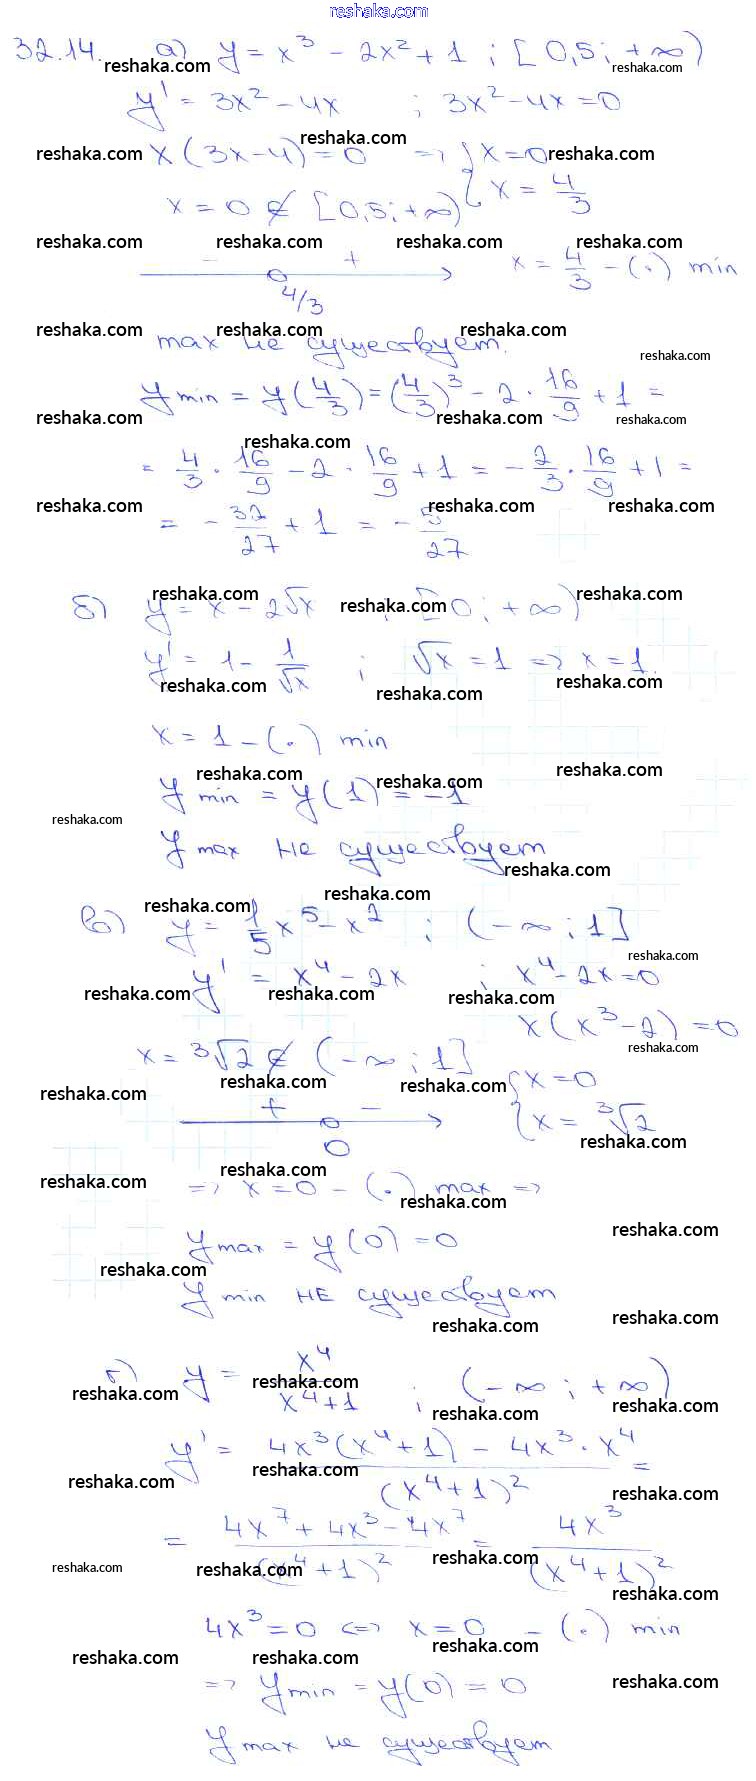 reshaka.com
32.14. а) y = x³ - 2x² + 1 ; [0,5; +∞)
y' = 3x² - 4x ; 3x² - 4x = 0
x(3x-4) = 0 => { x = 0
x = 4/3
x = 0 ∉ [0,5; +∞)
- +
4/3
x = 4/3 - (·) min
max не существует.
y min = y(4/3) = (4/3)³ - 2 · 16/9 + 1 =
= 4/3 · 16/9 - 2 · 16/9 + 1 = - 2/3 · 16/9 + 1 =
= - 32/27 + 1 = - 5/27
б) y = x - 2√x ; [0; +∞)
y' = 1 - 1/√x ; √x = 1 => x = 1.
x = 1 - (·) min
y min = y(1) = -1
y max не существует
в) y = 1/5 x⁵ - x² ; (-∞; 1]
y' = x⁴ - 2x ; x⁴ - 2x = 0
x(x³ - 2) = 0
x = ³√2 ∉ (-∞; 1]
{ x = 0
x = ³√2
+ -
0
=> x = 0 - (·) max =>
y max = y(0) = 0
y min не существует
г) y = x⁴/(x⁴+1) ; (-∞; +∞)
y' = (4x³(x⁴+1) - 4x³ · x⁴)/(x⁴+1)² =
= (4x⁷ + 4x³ - 4x⁷)/(x⁴+1)² = 4x³/(x⁴+1)²
4x³ = 0 <=> x = 0 - (·) min
=> y min = y(0) = 0
y max не существует